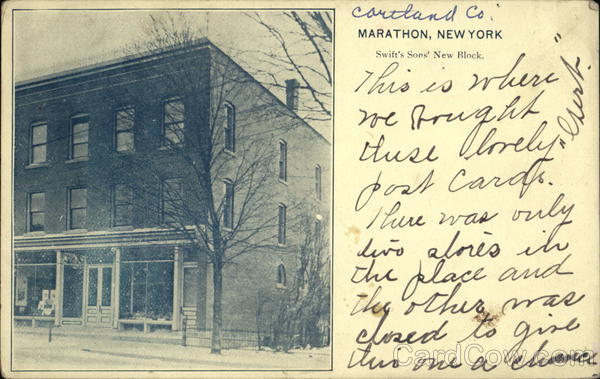 Cortland Co.
MARATHON, NEW YORK
Swift's Sons' New Block.
This is where
we bought
these lovely
post cards.
"Gert."
There was only
two stores in
the place and
the other was
closed to give
this one a chance
CardCow.com